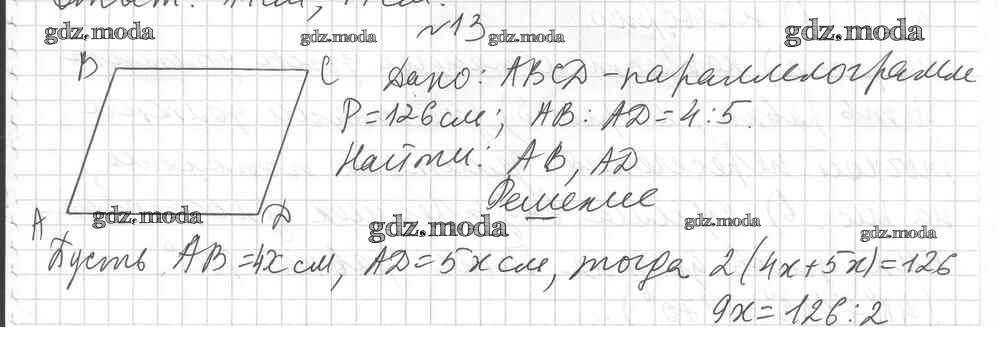 №13
gdz.moda gdz.moda gdz.moda gdz.moda
B C Дано: ABCD - параллелограмм
P = 126 см; AB : AD = 4 : 5.
Найти: AB, AD
Решение
A D
gdz.moda gdz.moda gdz.moda gdz.moda
Пусть AB = 4x см, AD = 5x см, тогда 2(4x + 5x) = 126
9x = 126 : 2